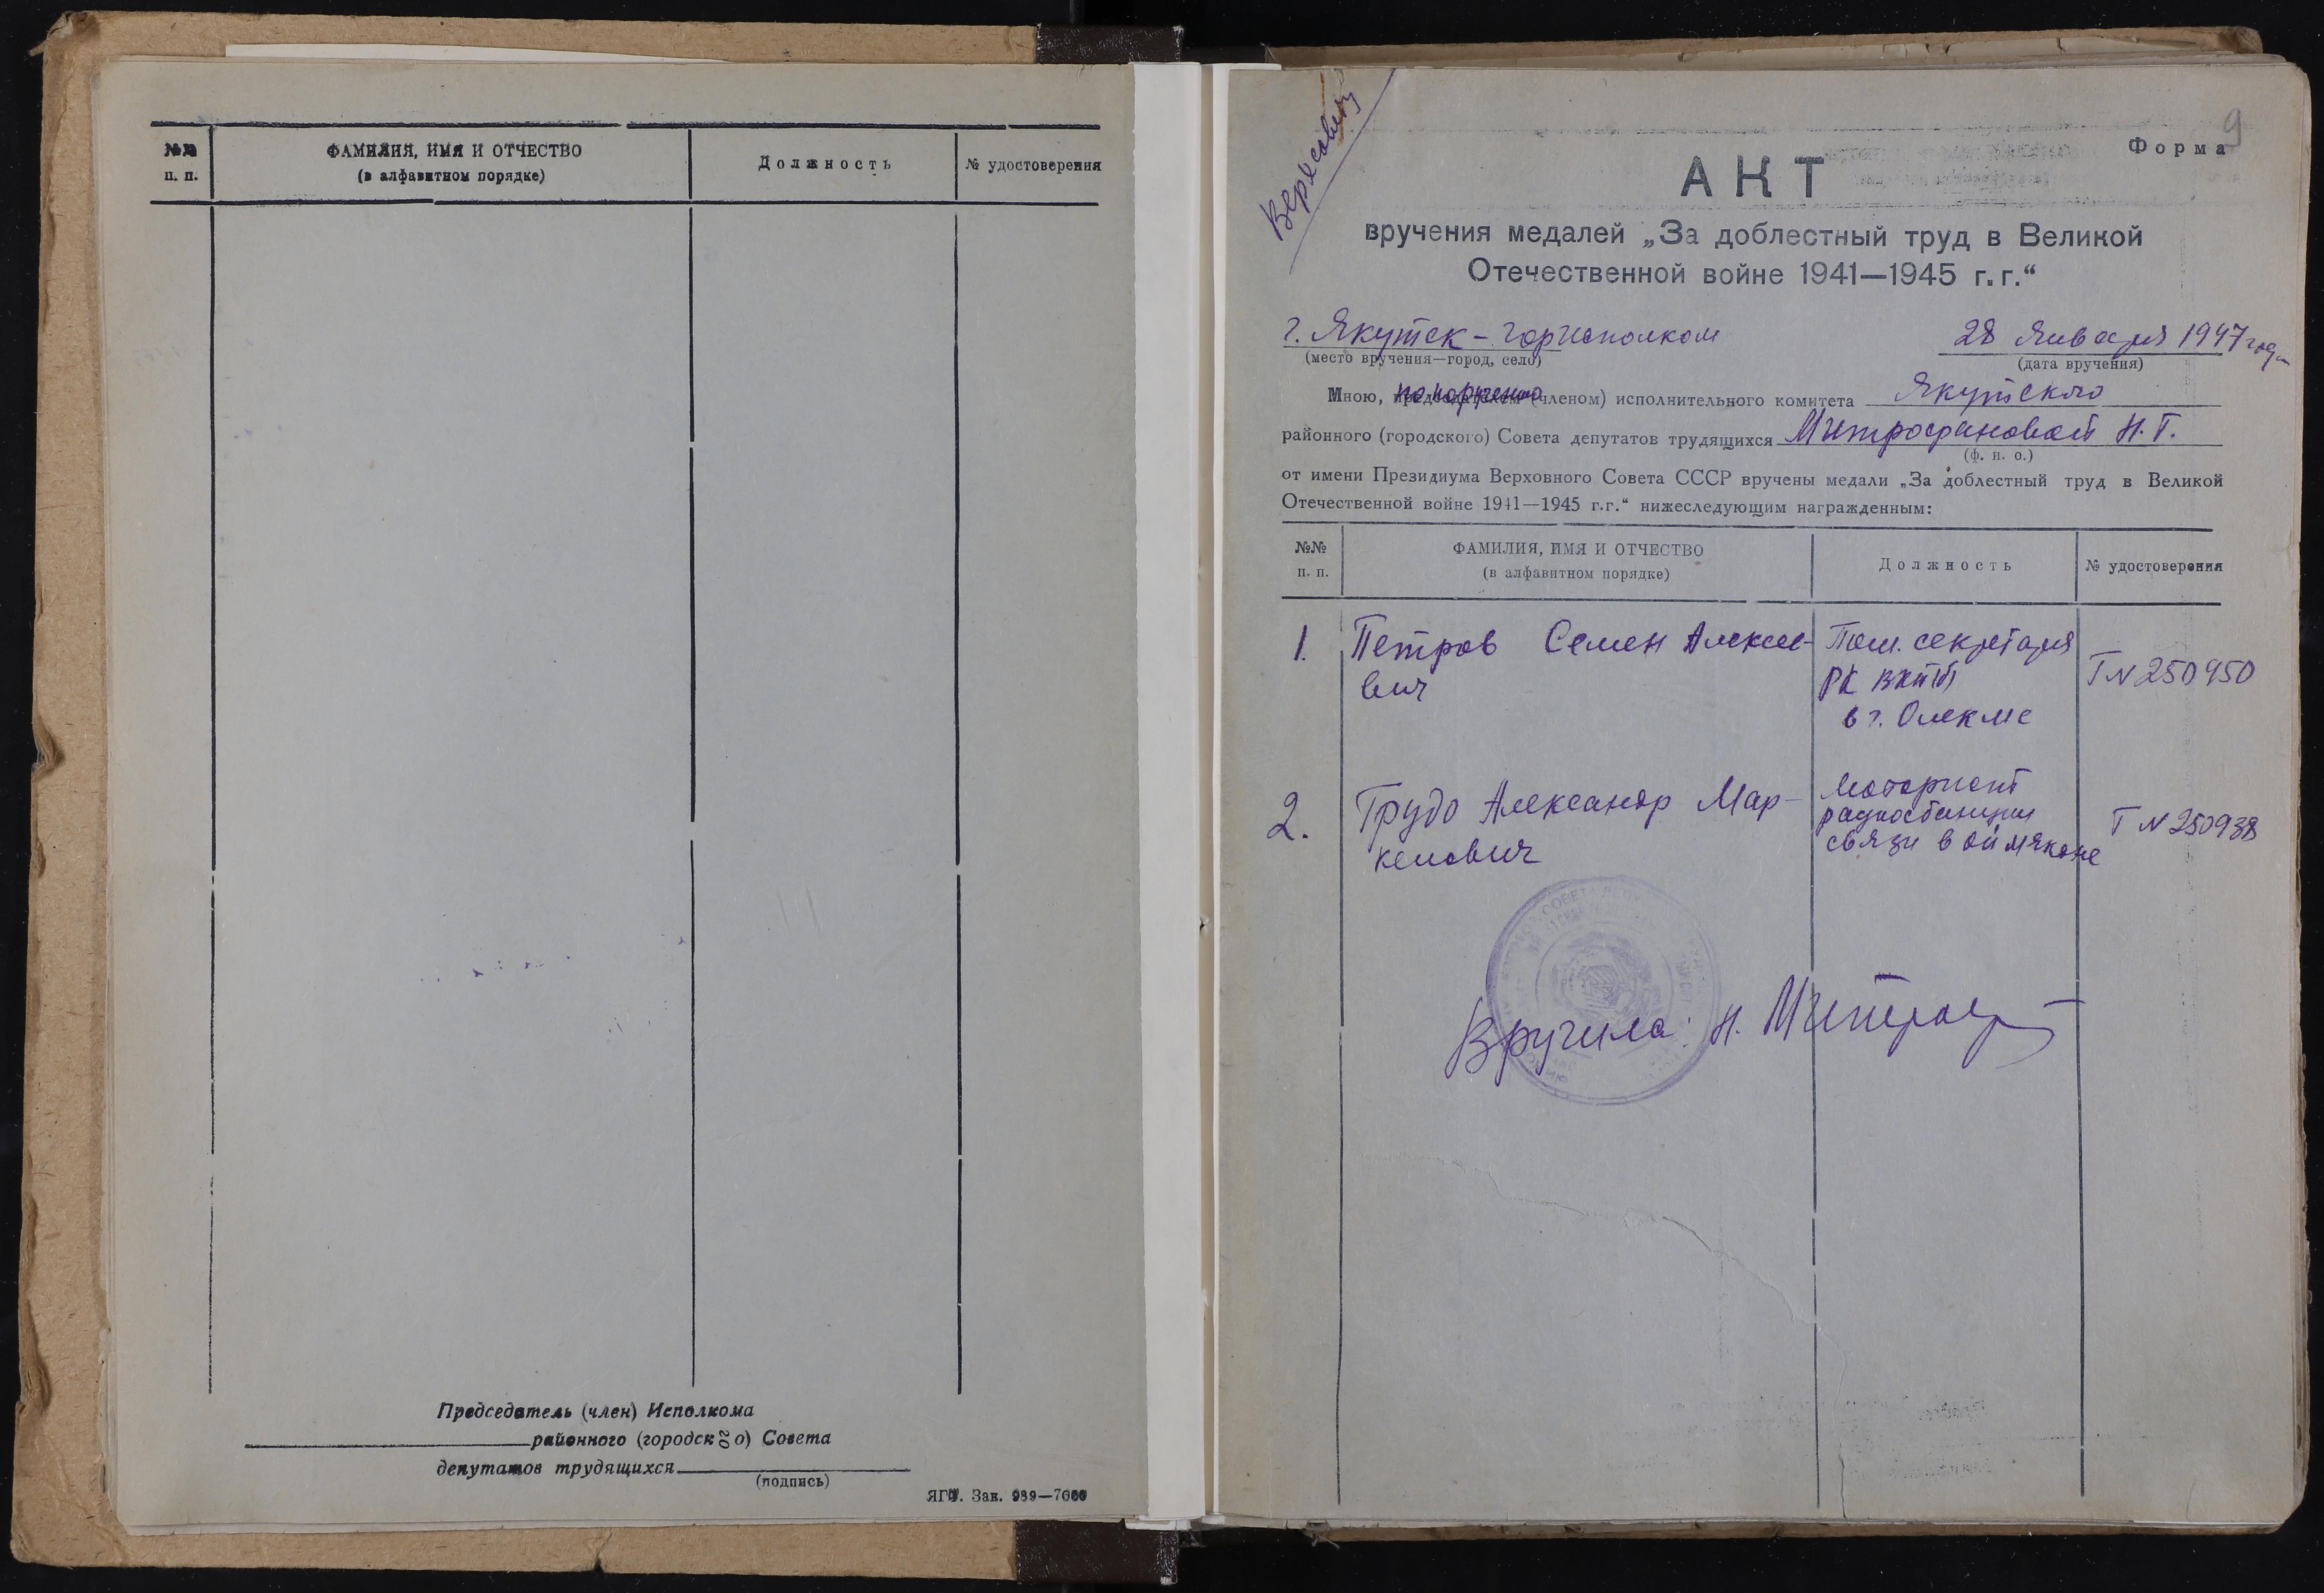 №№
п. п.
ФАМИЛИЯ, ИМЯ И ОТЧЕСТВО
(в алфавитном порядке)
Должность
№ удостоверения
Председатель (член) Исполкома
районного (городского) Совета
депутатов трудящихся
(подпись)
ЯГТ. Зак. 989—7000
9
Форма
АКТ
вручения медалей „За доблестный труд в Великой
Отечественной войне 1941—1945 г.г.“
г. Якутск - горисполком
28 января 1947 года
(место вручения—город, село)
(дата вручения)
Мною, по поручению (членом) исполнительного комитета Якутского
районного (городского) Совета депутатов трудящихся Митрофановой Н. Г.
(ф. и. о.)
от имени Президиума Верховного Совета СССР вручены медали „За доблестный труд в Великой
Отечественной войне 1941—1945 г.г.“ нижеследующим награжденным:
№№
п. п.
ФАМИЛИЯ, ИМЯ И ОТЧЕСТВО
(в алфавитном порядке)
Должность
№ удостоверения
1. Петров Семен Алексее-
вич
Пом. секретаря
РК ВКП(б)
в г. Олекме
Т N 250950
2. Трудо Александр Мар-
келович
Моторист
радиостанции
связи в Оймяконе
Т N 250938
Вручила: Н. Митроф